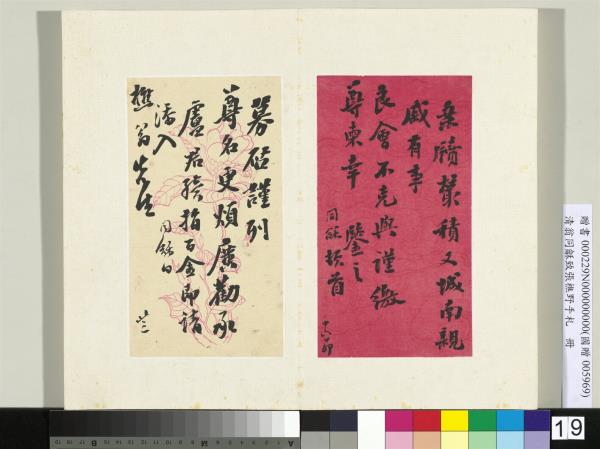 案牘叢積又城南親
戚有事
良會不克與謹繳
尊柬幸
鑒之
同龢頓首
募啓謹列
尊名更煩廣勸承
盧君獨捐百金即請
添入
樵翁先生
同龢白
廿三
贈書 000229N000000000(國贈 005969)
清翁同龢致張樵野手札 冊
19